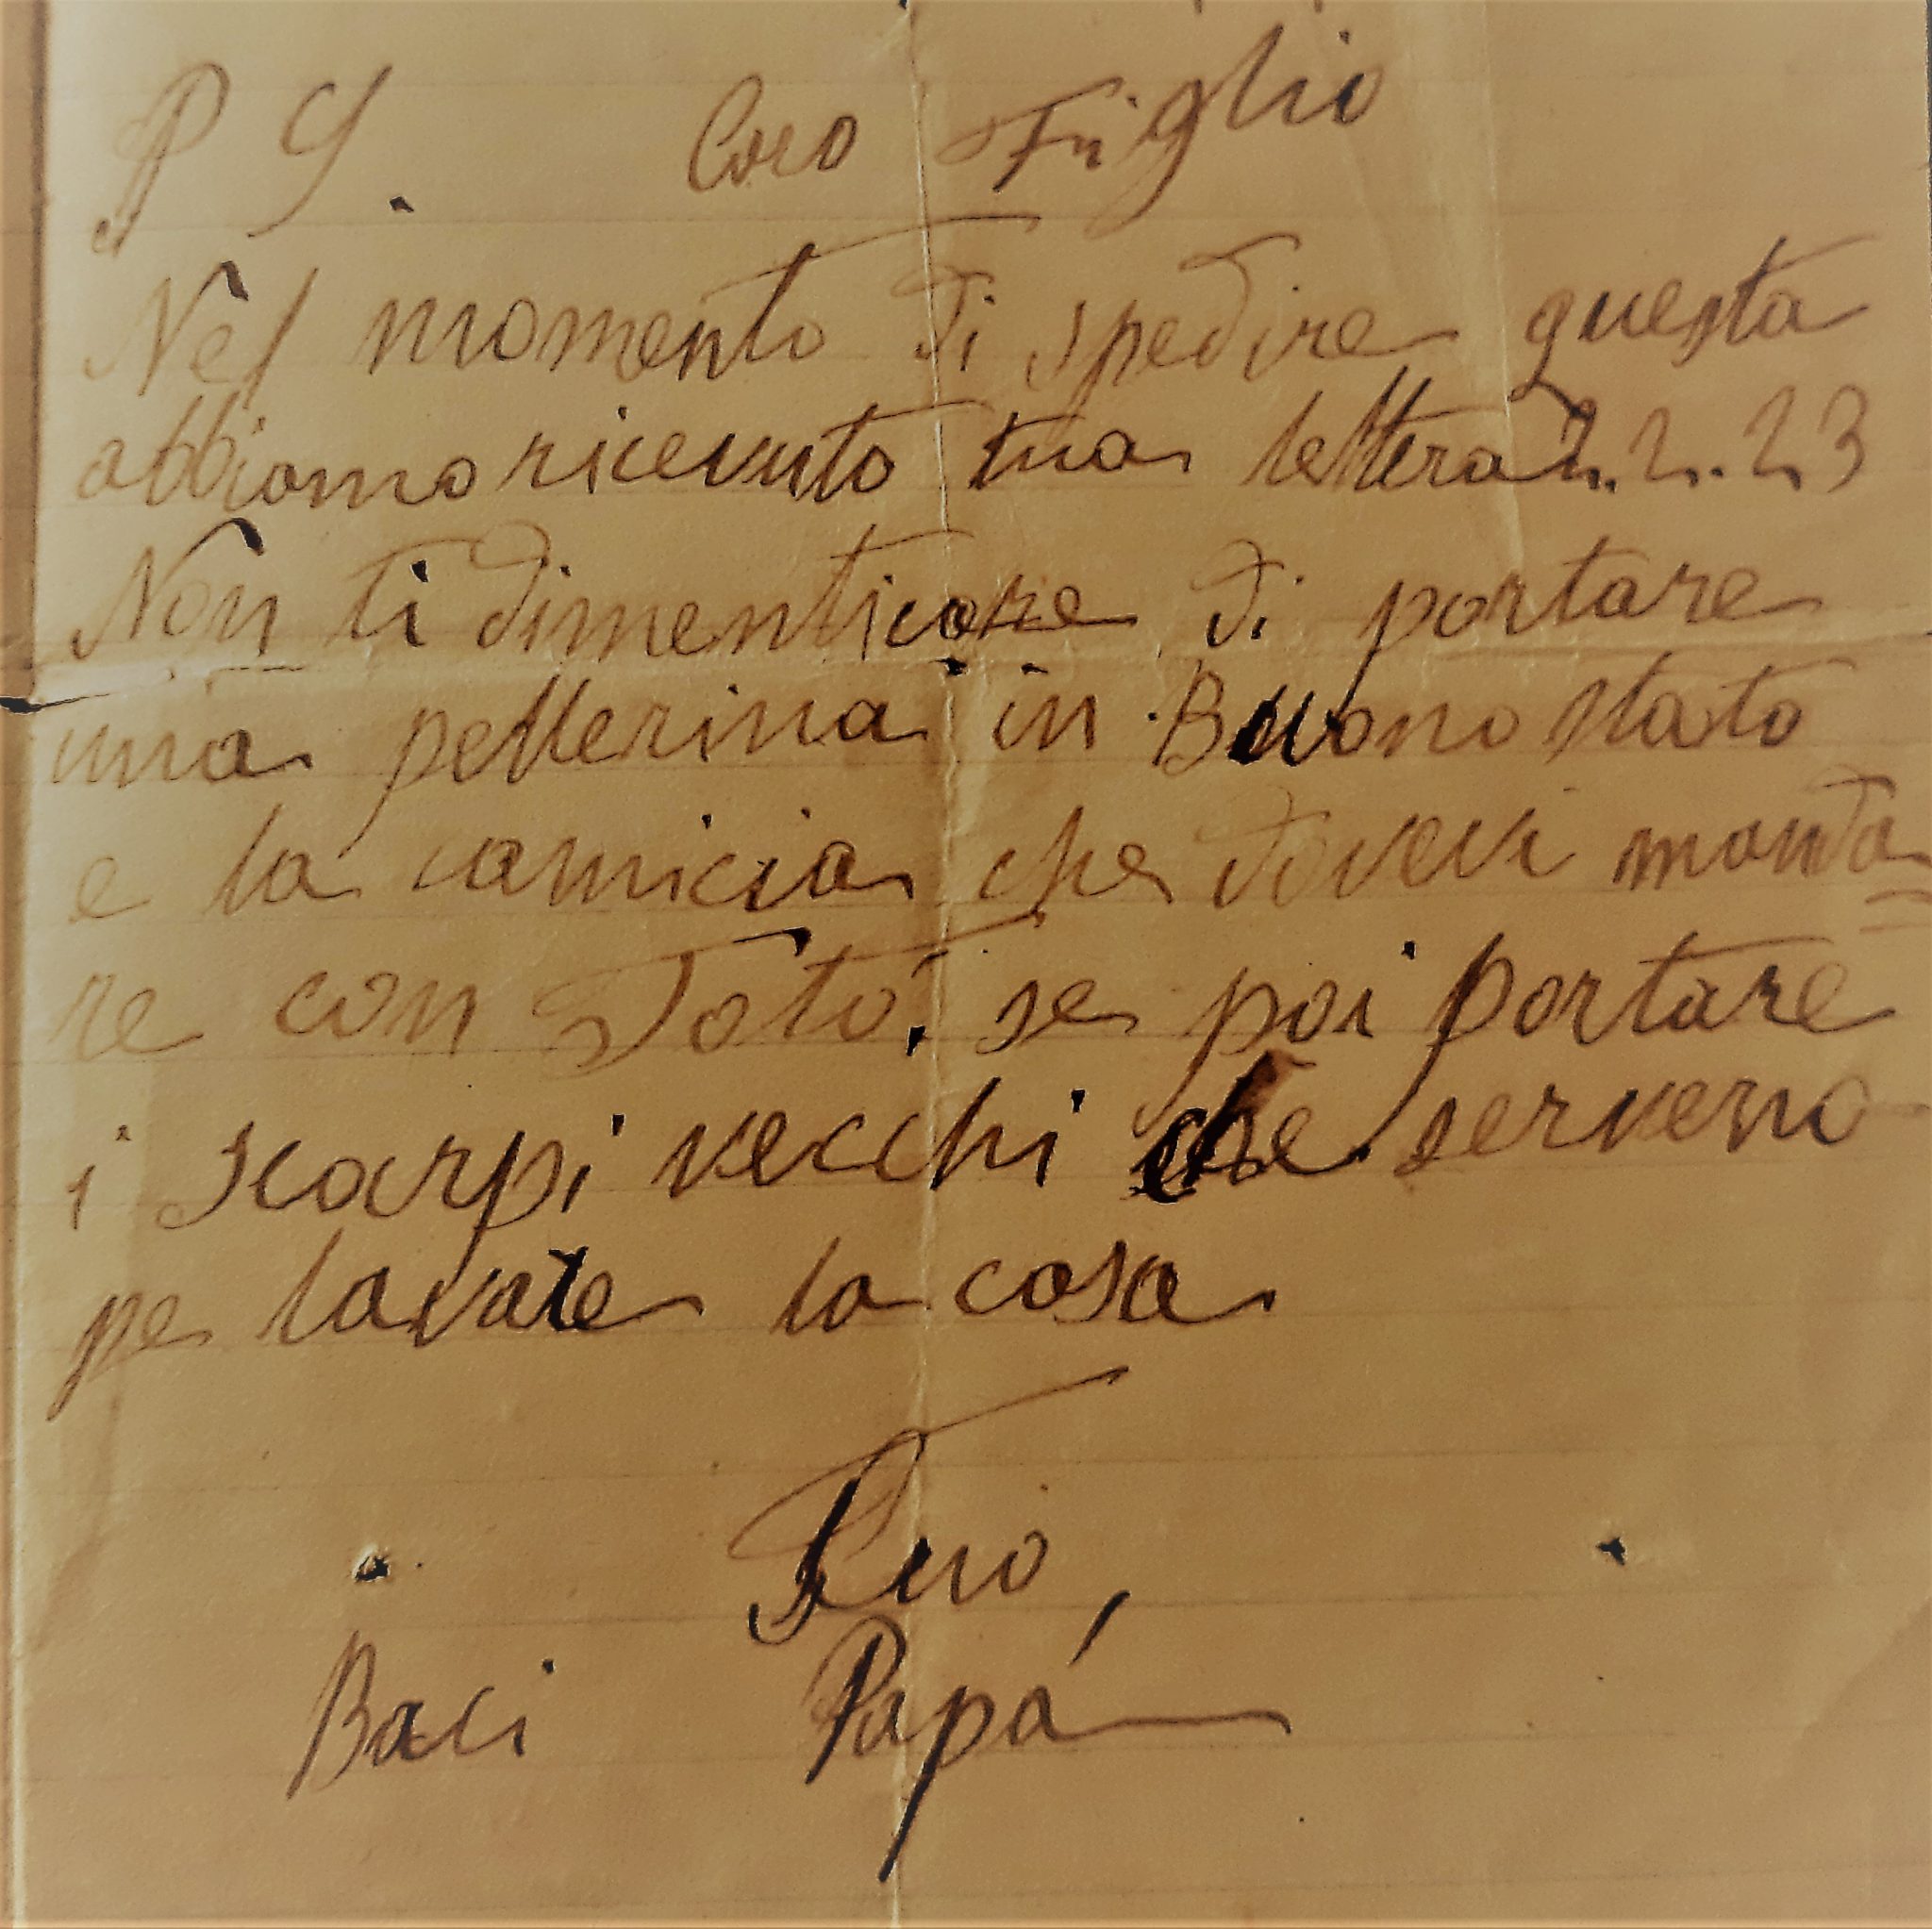 P S. Caro Figlio
Nel momento di spedire questa
abbiamo ricevuto tua lettera 2.2.23
Non ti dimenticare di portare
una pellerina in Buono stato
e la camicia che dovevi manda
re con Totó. se poi portare
i scarpi vecchi che serveno
pe lavare la casa
Tuo
Baci Papá